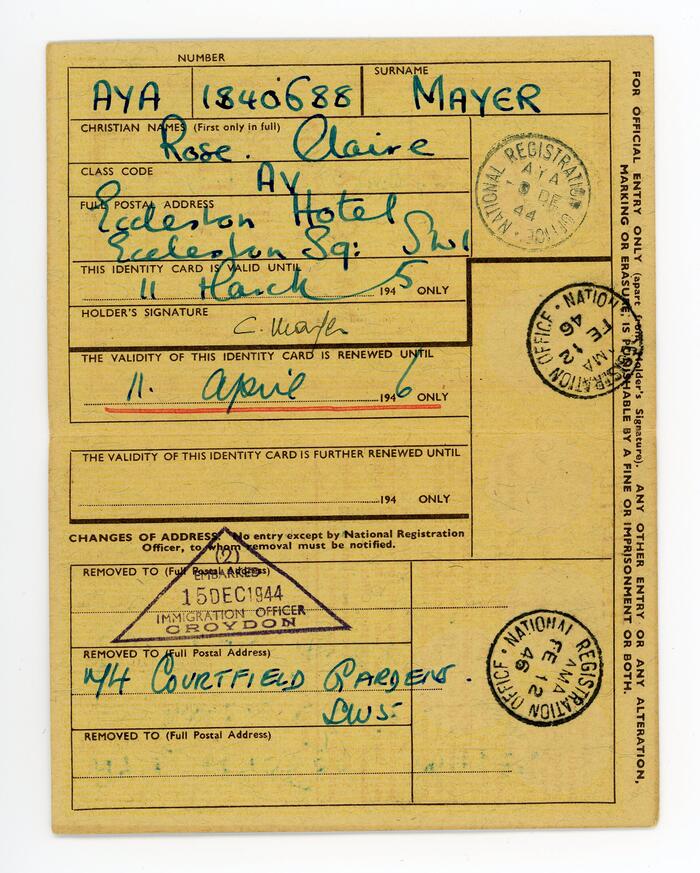 NUMBER
SURNAME
AYA 1840688 MAYER
CHRISTIAN NAMES (First only in full)
Rose. Claire
CLASS CODE
AY
FULL POSTAL ADDRESS
Eccleston Hotel
Eccleston Sq: SW1
THIS IDENTITY CARD IS VALID UNTIL
11 March 1945 ONLY
HOLDER'S SIGNATURE
C. Mayer
THE VALIDITY OF THIS IDENTITY CARD IS RENEWED UNTIL
11. April 1946 ONLY
THE VALIDITY OF THIS IDENTITY CARD IS FURTHER RENEWED UNTIL
194 ONLY
CHANGES OF ADDRESS. No entry except by National Registration
Officer, to whom removal must be notified.
REMOVED TO (Full Postal Address)
(2)
EMBARKED
15 DEC 1944
IMMIGRATION OFFICER
CROYDON
REMOVED TO (Full Postal Address)
COURTFIELD GARDENS.
SW5
REMOVED TO (Full Postal Address)
NATIONAL REGISTRATION OFFICE
AYA
DE
44
NATIONAL REGISTRATION OFFICE
AMA
FE 12
46
NATIONAL REGISTRATION OFFICE
AMA
FE 12
46
FOR OFFICIAL ENTRY ONLY (apart from Holder's Signature). ANY OTHER ENTRY OR ANY ALTERATION,
MARKING OR ERASURE, IS PUNISHABLE BY A FINE OR IMPRISONMENT OR BOTH.